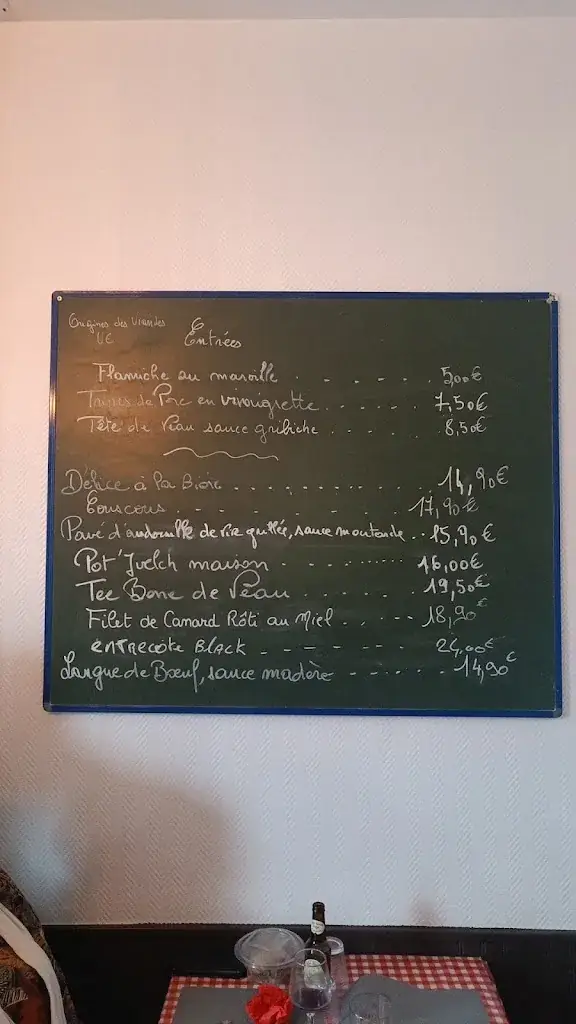 Origines des Viandes
UE
Entrées
Flamiche au maroille - - - - - - 5,00€
de Porc en vinaigrette - - - - - 7,50€
Tête de Veau sauce gribiche - - - - 8,50€
Délice à la Bière - - - - - - - - - 14,90€
Couscous - - - - - - - - - 17,90€
Pavé d'andouille de vire grillée, sauce moutarde .. 15,90€
Pot'Jvelch maison - - - - - - - - 16,00€
Tee Bone de Veau - - - - - 19,50€
Filet de Canard Rôti au Miel - - - - 18,90€
ENTRECOTE BLACK - - - - - - 24,00€
Langue de Bœuf, sauce madère - - - - - 14,90€